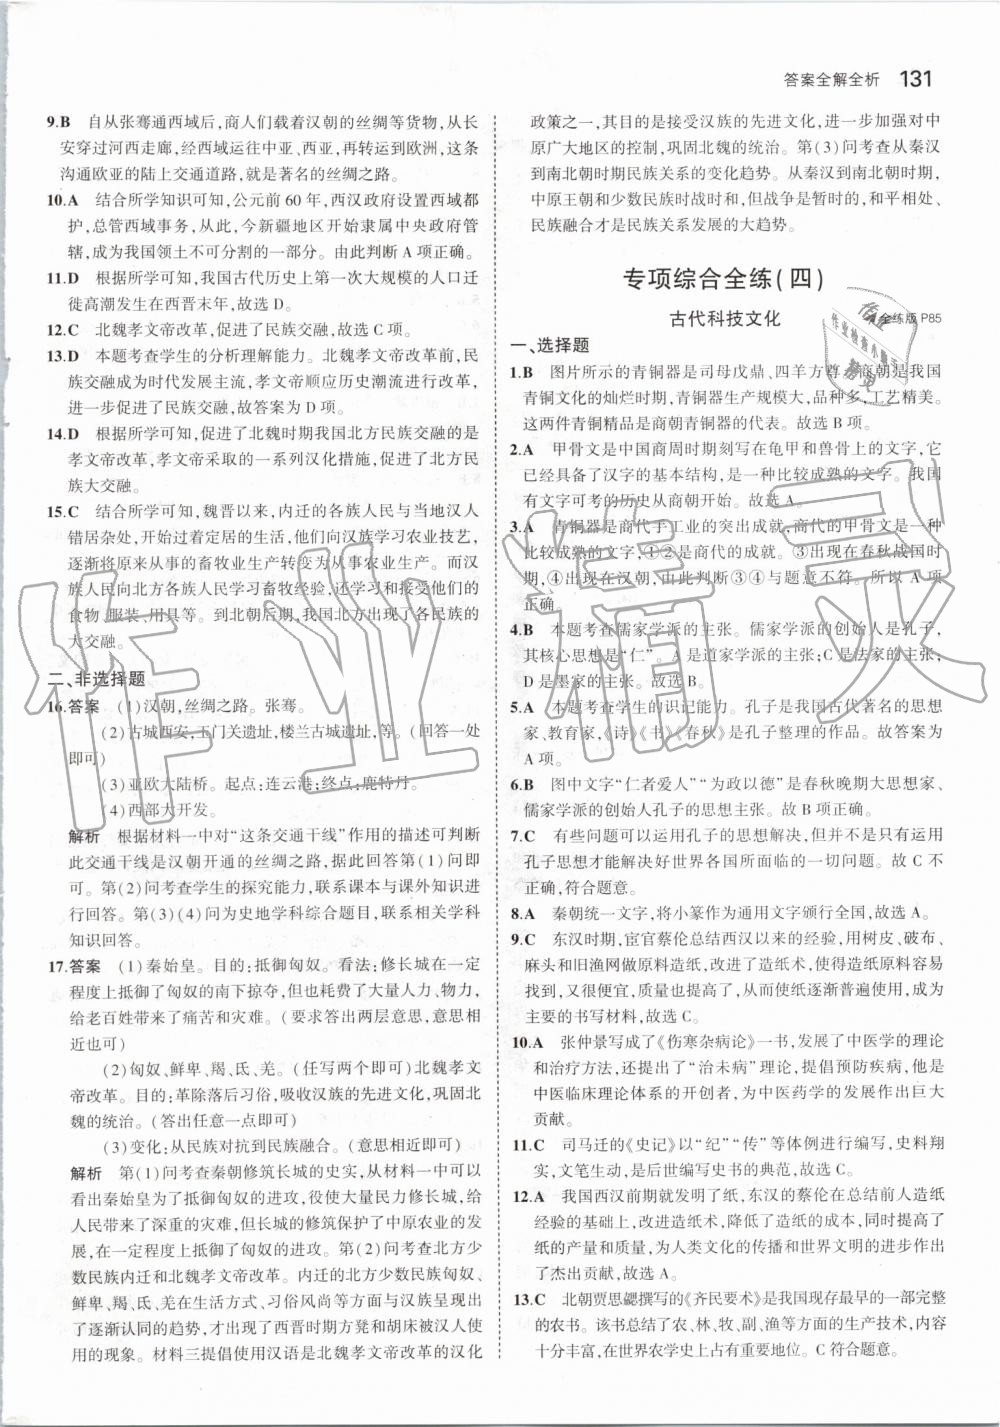 答案全解全析 131
9.B 自从张骞通西域后,商人们载着汉朝的丝绸等货物,从长
安穿过河西走廊,经西域运往中亚、西亚,再转运到欧洲,这条
沟通欧亚的陆上交通道路,就是著名的丝绸之路。
10.A 结合所学知识可知,公元前 60 年,西汉政府设置西域都
护,总管西域事务,从此,今新疆地区开始隶属中央政府管
辖,成为我国领土不可分割的一部分。由此判断 A 项正确。
11.D 根据所学可知,我国古代历史上第一次大规模的人口迁
徙高潮发生在西晋末年,故选 D。
12.C 北魏孝文帝改革,促进了民族交融,故选 C 项。
13.D 本题考查学生的分析理解能力。北魏孝文帝改革前,民
族交融成为时代发展主流,孝文帝顺应历史潮流进行改革,
进一步促进了民族交融,故答案为 D 项。
14.D 根据所学可知,促进了北魏时期我国北方民族交融的是
孝文帝改革,孝文帝采取的一系列汉化措施,促进了北方民
族大交融。
15.C 结合所学可知,魏晋以来,内迁的各族人民与当地汉人
错居杂处,开始过着定居的生活,他们向汉族学习农业技艺,
逐渐将原来从事的畜牧业生产转变为从事农业生产。而汉
族人民向北方各族人民学习畜牧经验,还学习并接受他们的
食物、服装、用具等。到北朝后期,我国北方出现了各民族的
大交融。
二、非选择题
16.答案 (1)汉朝,丝绸之路。张骞。
(2)古城西安,玉门关遗址,楼兰古城遗址,等。(回答一处
即可)
(3)亚欧大陆桥。起点:连云港;终点:鹿特丹。
(4)西部大开发。
解析 根据材料一中对“这条交通干线”作用的描述可判断
此交通干线是汉朝开通的丝绸之路,据此回答第(1)问即
可。第(2)问考查学生的探究能力,联系课本与课外知识进
行回答。第(3)(4)问为史地学科综合题目,联系相关学科
知识回答。
17.答案 (1)秦始皇。目的:抵御匈奴。看法:修长城在一定
程度上抵御了匈奴的南下掠夺,但也耗费了大量人力、物力,
给老百姓带来了痛苦和灾难。(要求答出两层意思,意思相
近也可)
(2)匈奴、鲜卑、羯、氐、羌。(任写两个即可)北魏孝文
帝改革。目的:革除落后习俗,吸收汉族的先进文化,巩固北
魏的统治。(答出任意一点即可)
(3)变化:从民族对抗到民族融合。(意思相近即可)
解析 第(1)问考查秦朝修筑长城的史实,从材料一中可以
看出秦始皇为了抵御匈奴的进攻,役使大量民力修长城,给
人民带来了深重的灾难,但长城的修筑保护了中原农业的发
展,在一定程度上抵御了匈奴的进攻。第(2)问考查北方少
数民族内迁和北魏孝文帝改革。内迁的北方少数民族匈奴、
鲜卑、羯、氐、羌在生活方式、习俗风尚等方面与汉族呈现出
了逐渐认同的趋势,才出现了西晋时期方凳和胡床被汉人使
用的现象。材料三提倡使用汉语是北魏孝文帝改革的汉化
政策之一,其目的是接受汉族的先进文化,进一步加强对中
原广大地区的控制,巩固北魏的统治。第(3)问考查从秦汉
到南北朝时期民族关系的变化趋势。从秦汉到南北朝时期,
中原王朝和少数民族时战时和,但战争是暂时的,和平相处、
民族融合才是民族关系发展的大趋势。
专项综合全练(四)
古代科技文化
全练版 P85
一、选择题
1.B 图片所示的青铜器是司母戊鼎、四羊方尊。商朝是我国
青铜文化的灿烂时期,青铜器生产规模大,品种多,工艺精美。
这两件青铜精品是商朝青铜器的代表。故选 B 项。
2.A 甲骨文是中国商周时期刻写在龟甲和兽骨上的文字,它
已经具备了汉字的基本结构,是一种比较成熟的文字。我国
有文字可考的历史从商朝开始。故选 A。
3.A 青铜器是商代手工业的突出成就,商代的甲骨文是一种
比较成熟的文字,①②是商代的成就。③出现在春秋战国时
期,④出现在汉朝,由此判断③④与题意不符。所以 A 项
正确。
4.B 本题考查儒家学派的主张。儒家学派的创始人是孔子,
其核心思想是“仁”。A 是道家学派的主张;C 是法家的主张;
D 是墨家的主张。故选 B。
5.A 本题考查学生的识记能力。孔子是我国古代著名的思想
家、教育家,《诗》《书》《春秋》是孔子整理的作品。故答案为
A 项。
6.B 图中文字“仁者爱人”“为政以德”是春秋晚期大思想家、
儒家学派的创始人孔子的思想主张。故 B 项正确。
7.C 有些问题可以运用孔子的思想解决,但并不是只有运用
孔子思想才能解决好世界各国所面临的一切问题。故 C 不
正确,符合题意。
8.A 秦朝统一文字,将小篆作为通用文字颁行全国,故选 A。
9.C 东汉时期,宦官蔡伦总结西汉以来的经验,用树皮、破布、
麻头和旧渔网做原料造纸,改进了造纸术,使得造纸原料容易
找到,又很便宜,从而使纸逐渐普遍使用,成为
主要的书写材料,故选 C。
10.A 张仲景写成了《伤寒杂病论》一书,发展了中医学的理论
和治疗方法,还提出了“治未病”理论,提倡预防疾病,他是
中医临床理论体系的开创者,为中医药学的发展作出巨大
贡献。
11.C 司马迁的《史记》以“纪”“传”等体例进行编写,史料翔
实,文笔生动,是后世编写史书的典范,故选 C。
12.A 我国西汉前期就发明了纸,东汉的蔡伦在总结前人造纸
经验的基础上,改进造纸术,降低了造纸的成本,同时提高了
纸的产量和质量,为人类文化的传播和世界文明的进步作出
了杰出贡献,故选 A。
13.C 北朝贾思勰撰写的《齐民要术》是我国现存最早的一部完整
的农书。该书总结了农、林、牧、副、渔等方面的生产技术,内容
十分丰富,在世界农学史上占有重要地位。C 符合题意。
作业精灵
作业检查小助手
精灵